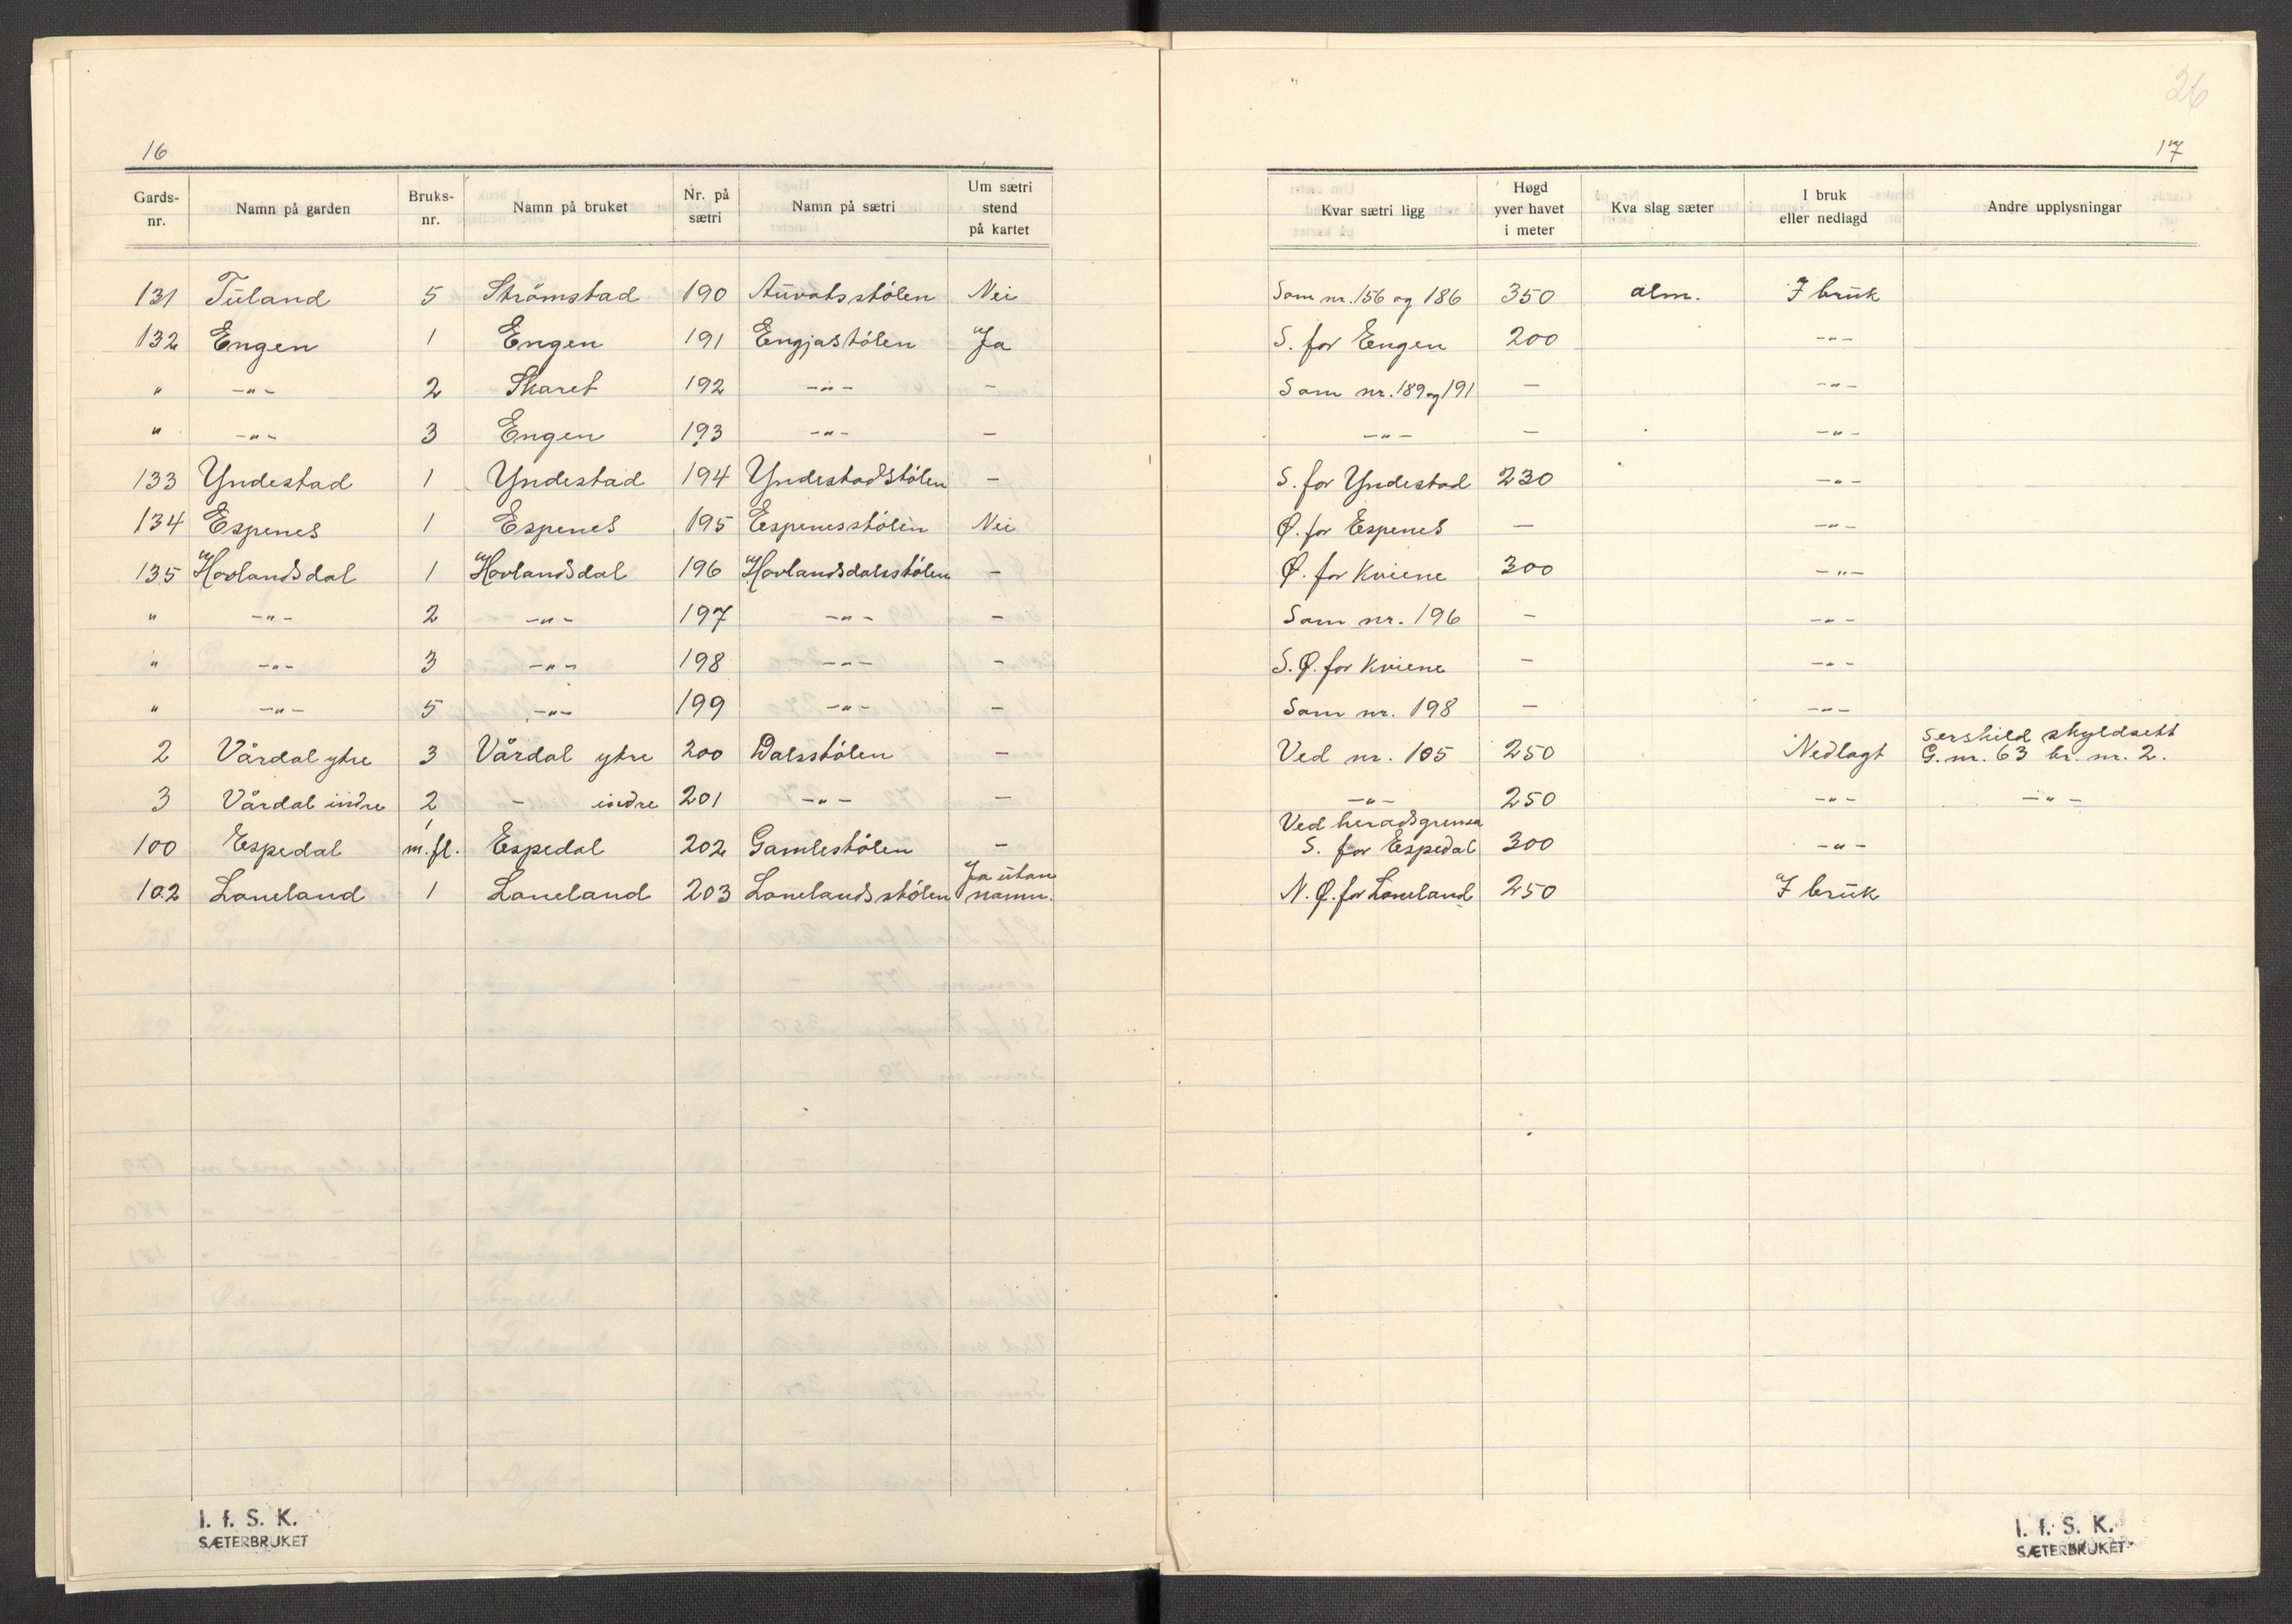 16
Gards-nr. Namn på garden Bruks-nr. Namn på bruket Nr. på sætri Namn på sætri Um sætri stend på kartet
131 Tuland 5 Strömstad 190 Auvatsstölen Nei
132 Engen 1 Engen 191 Engjastölen Ja
" -"- 2 Skaret 192 -"- -
" -"- 3 Engen 193 -"- -
133 Yndestad 1 Yndestad 194 Yndestadstölen -
134 Espenes 1 Espenes 195 Espenesstölen Nei
135 Hovlandsdal 1 Hovlandsdal 196 Hovlandsdalsstölen -
" -"- 2 -"- 197 -"- -
" -"- 3 -"- 198 -"- -
" -"- 5 -"- 199 -"- -
2 Vårdal ytre 3 Vårdal ytre 200 Dalsstölen -
3 Vårdal indre 2 - indre 201 -"- -
100 Espedal 1 m.fl. Espedal 202 Gamlestölen -
102 Loneland 1 Loneland 203 Lonelandsstölen Ja utan namn.
I. f. S. K.
SÆTERBRUKET
26
17
Kvar sætri ligg Høgd yver havet i meter Kva slag sæter I bruk eller nedlagd Andre upplysningar
Som nr. 156 og 186 350 alm. I bruk
S. for Engen 200 -"-
Som nr. 189 og 191 - -"-
-"- - -"-
S. for Yndestad 230 -"-
Ø. for Espenes - -"-
Ø. for Kviene 300 -"-
Som nr. 196 - -"-
S.Ø. for Kviene - -"-
Som nr. 198 - -"-
Ved nr. 105 250 Nedlagt Serskild skyldsett G. nr. 63 br. nr. 2.
-"- 250 -"- -"-
Ved heradsgrensa S. for Espedal 300 -"-
N.Ø. for Loneland 250 I bruk
I. f. S. K.
SÆTERBRUKET